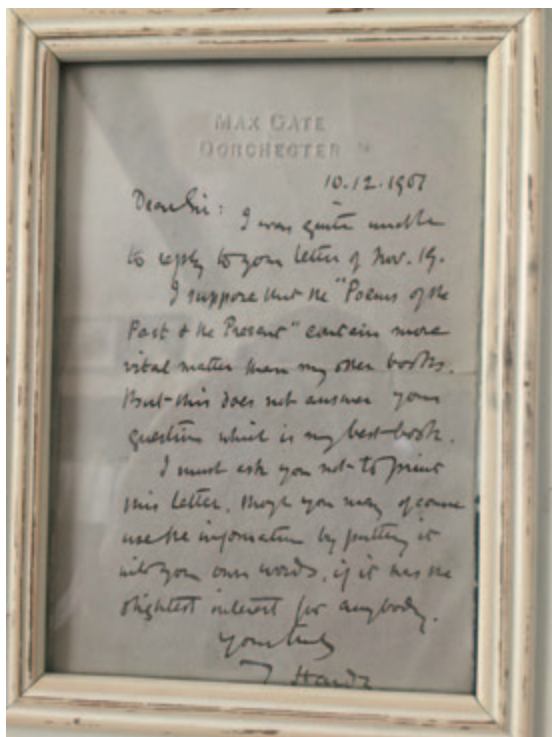 MAX GATE
DORCHESTER
10.12.1907
Dear Sir:
I was quite unable
to reply to your letter of Nov. 19.
I suppose that the "Poems of the
Past & the Present" contain more
vital matter than my other books.
But this does not answer your
question which is my best book.
I must ask you not to print
this letter, though you may of course
use the information by putting it
into your own words, if it has the
slightest interest for anybody.
Yours truly
T Hardy